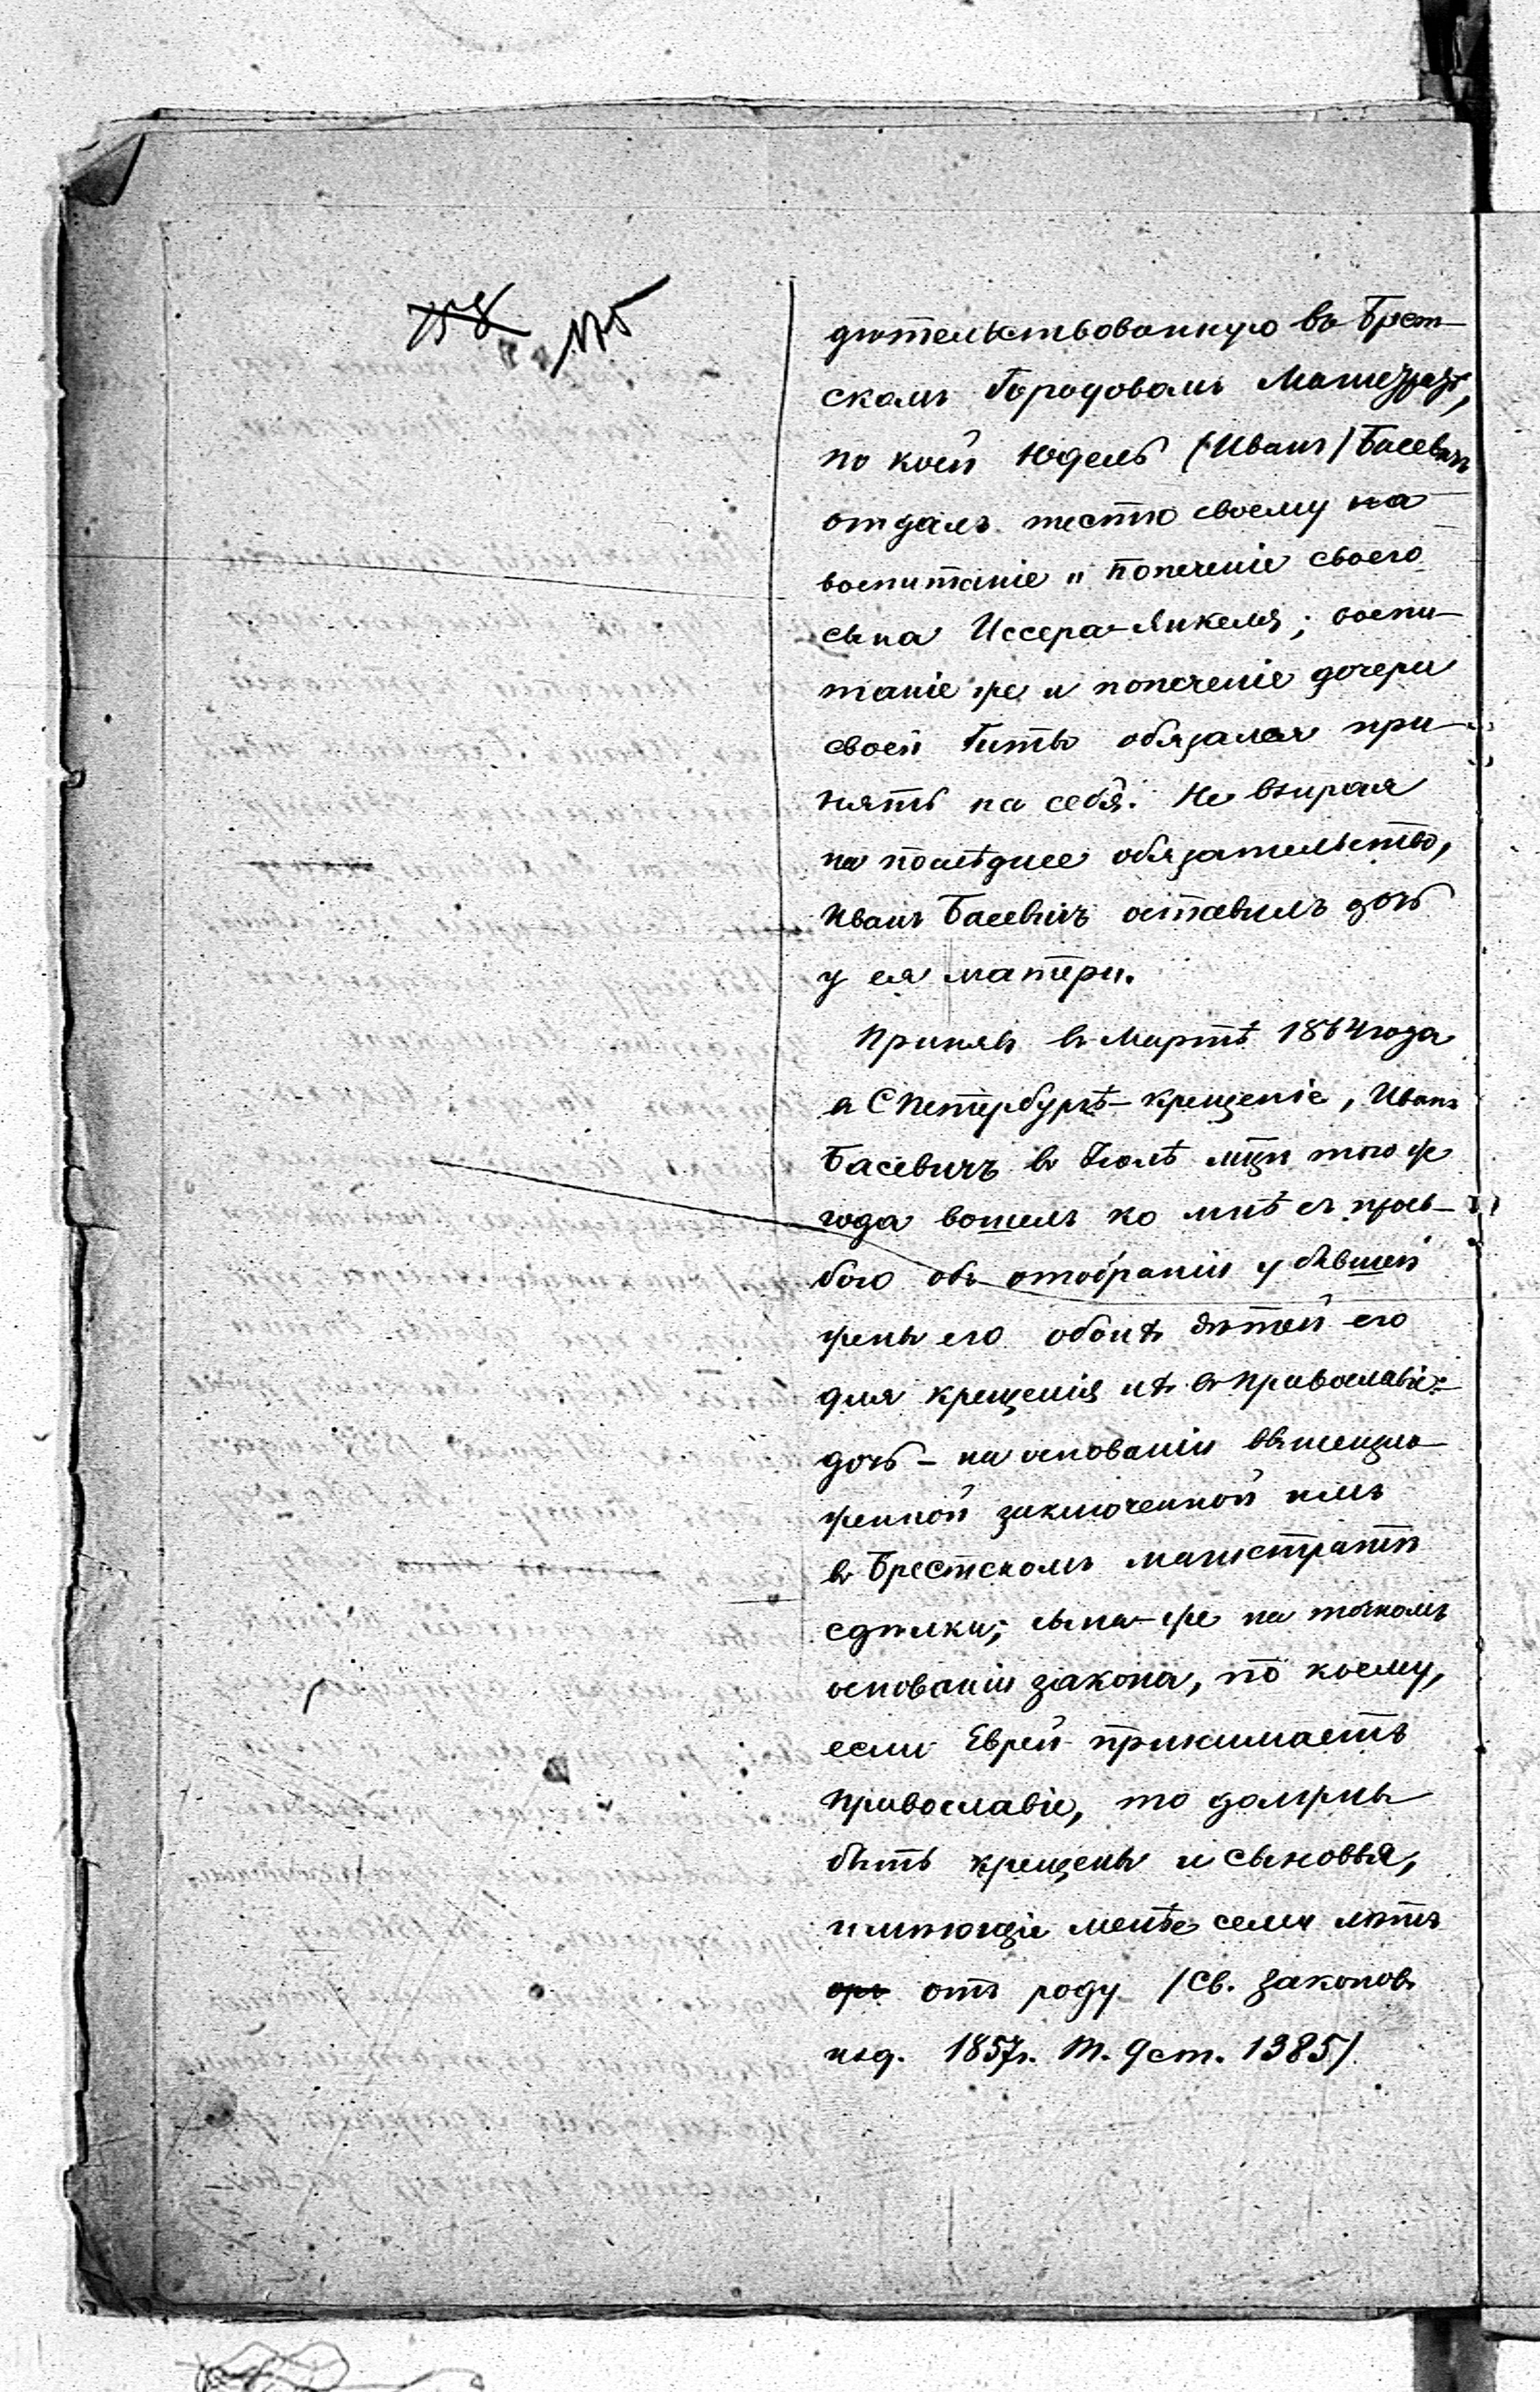 158 175
дѣтельствованную въ Брест-
скомъ Городовомъ Магистратѣ,
по коей Юдель (Иванъ) Басевичъ
отдалъ тестю своему на
воспитаніе и попеченіе своего
сына Иссера-Янкеля; воспи-
таніе же и попеченіе дочери
своей Гиты обязался при-
нять на себя. Не взирая
на послѣднее обязательство,
Иванъ Басевичъ оставилъ дочь
у ея матери.
Принявъ въ Мартѣ 1864 года
въ СПетербургѣ крещеніе, Иванъ
Басевичъ въ Іюлѣ мцѣ того же
года вошелъ ко мнѣ съ прось-
бою объ отобраніи у бывшей
жены его обоихъ дѣтей его
для крещенія ихъ въ Православіе:
дочь - на основаніи вышеизло-
женной заключенной имъ
въ Брестскомъ магистратѣ
сдѣлки; сына-же на точномъ
основаніи закона, по коему,
если Еврей принимаетъ
Православіе, то должны
быть крещены и сыновья,
имѣющіе менѣе семи лѣтъ
отъ роду (Св. Законовъ
изд. 1857г. Т. 9 ст. 1385)